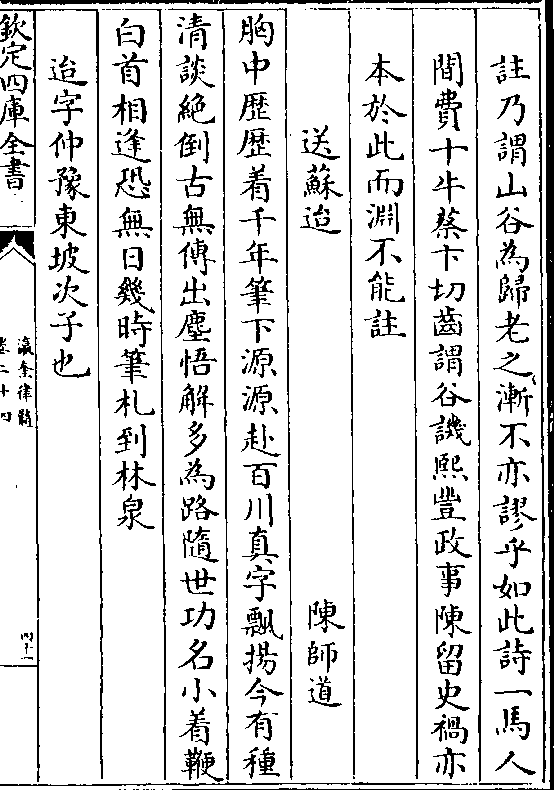 註乃謂山谷為歸老之漸不亦謬乎如此詩一馬人
間費十牛蔡卞切齒謂谷譏熙豐政事陳留史禍亦
本於此而淵不能註
送蘇迨　陳師道
胸中歷歷着千年筆下源源赴百川真字飄揚今有種
清談絶倒古無傳出塵悟解多為路隨世功名小着鞭
白首相逢恐無日幾時筆札到林泉
迨字仲豫東坡次子也
欽定四庫全書
瀛奎律髓
卷二十四
四十一